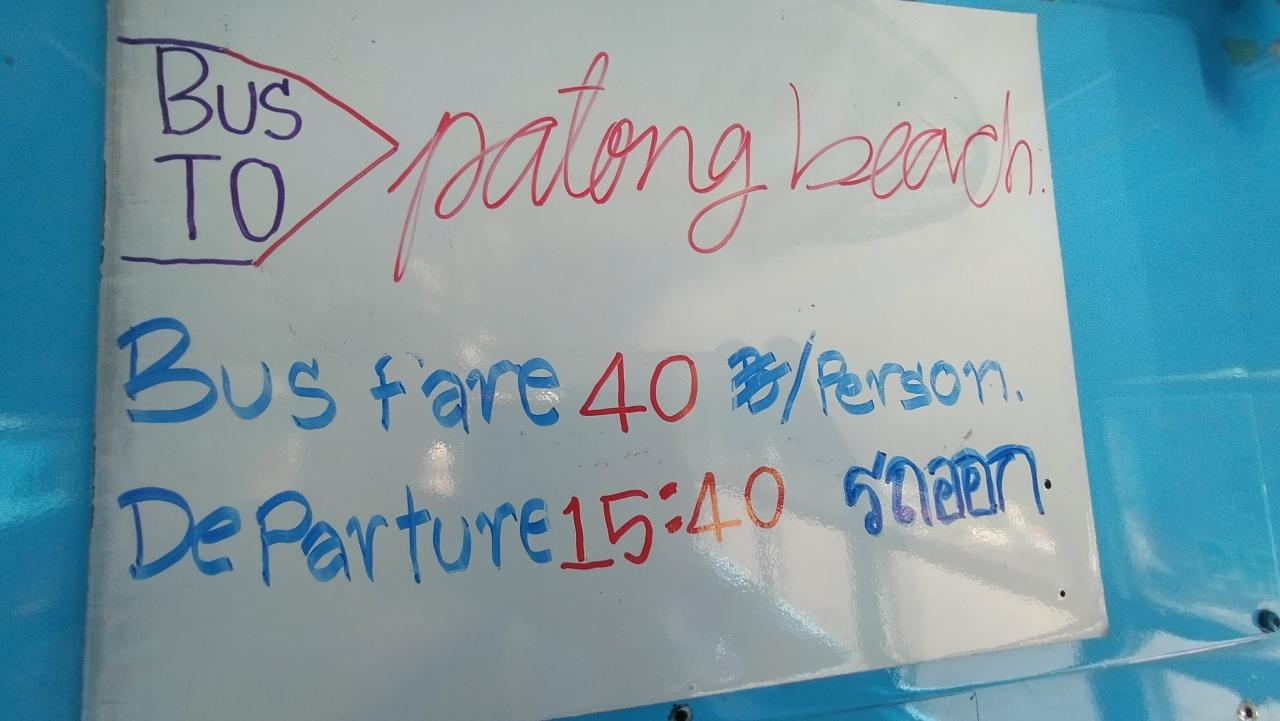 BUS
TO
patong beach.
Bus fare 40 ฿/Person.
DeParture 15:40 รถออก.